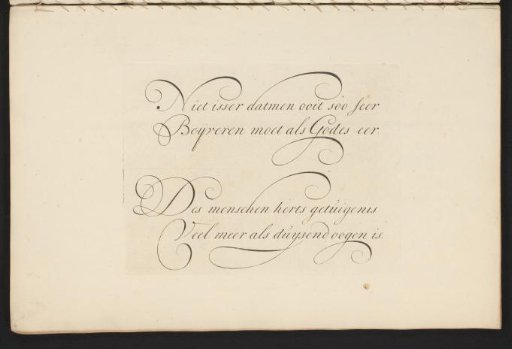 Niet isser datmen ooit soo seer
Beyveren moet als Godes eer.
Des menschen herts getuigenis
Veel meer als duysend oogen is.